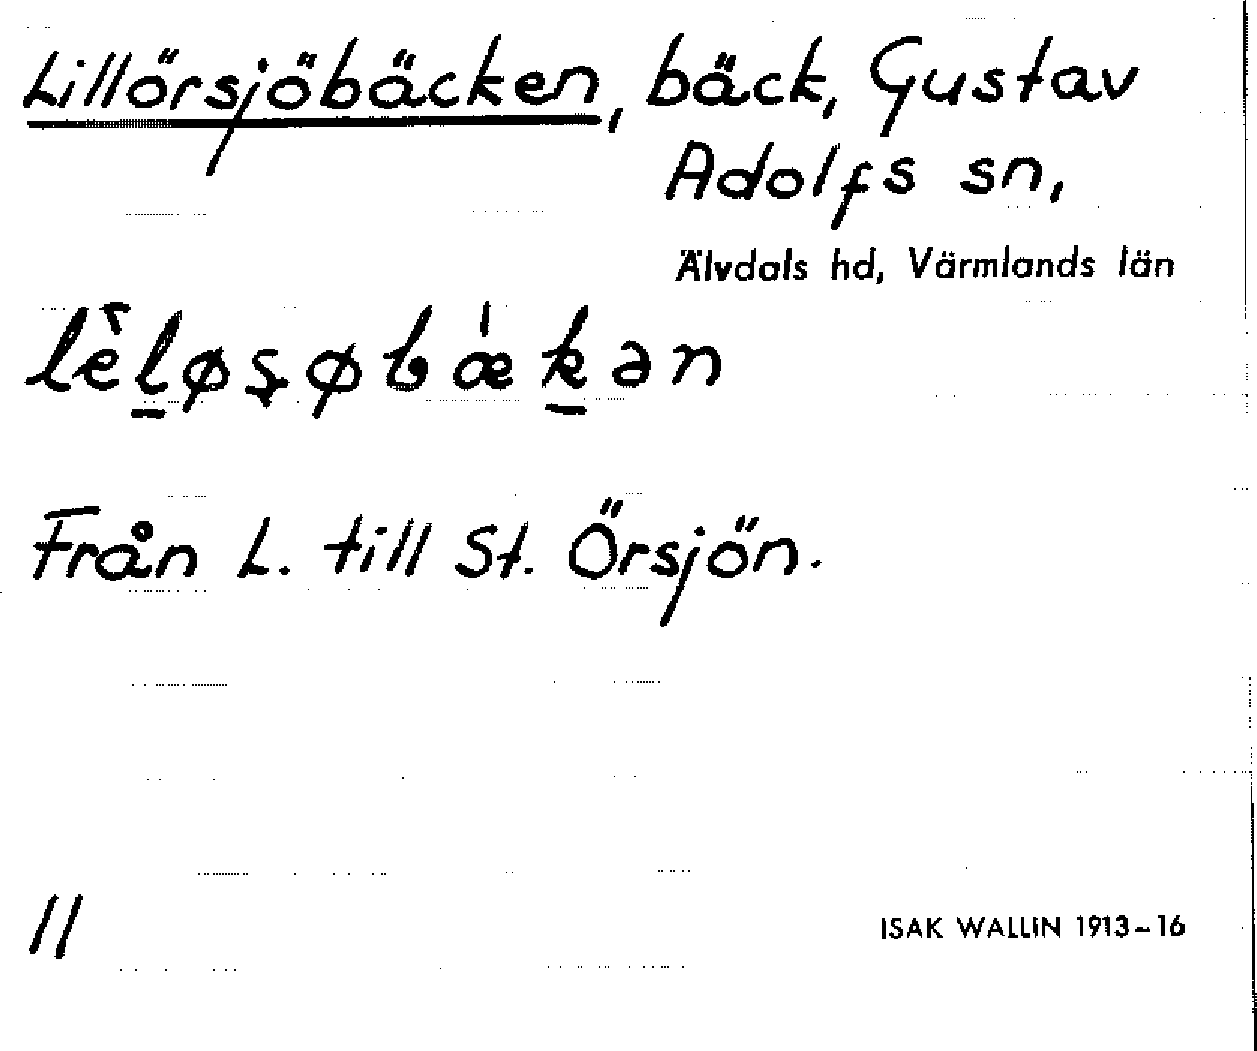 Lillörsjöbäcken, bäck, Gustav
Adolfs sn,
Älvdals hd, Värmlands län
lèl̠øʂøbǽk̠ən
Från L. till St. Örsjön.
11
ISAK WALLIN 1913-16